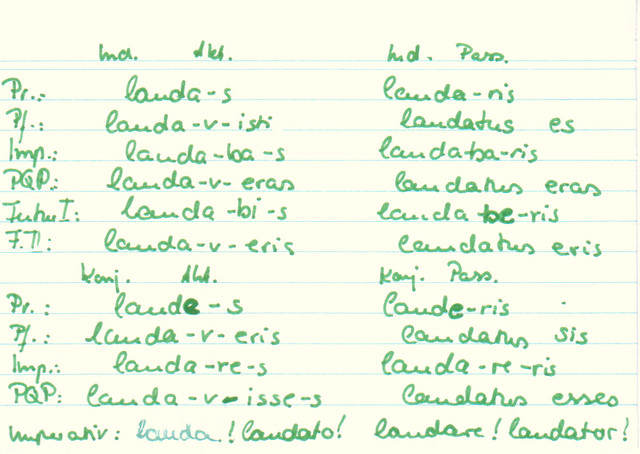 Ind. Akt. Ind. Pass.
Pr.: lauda-s lauda-ris
Pf.: lauda-v-isti laudatus es
Imp.: lauda-ba-s laudaba-ris
PQP: lauda-v-eras laudatus eras
Futur I: lauda-bi-s lauda be-ris
F.II: lauda-v-eris laudatus eris
Konj. Akt. Konj. Pass.
Pr.: laude-s laude-ris
Pf.: lauda-v-eris laudatus sis
Imp.: lauda-re-s lauda-re-ris
PQP: lauda-v-isse-s laudatus esses
Imperativ: lauda! laudato! laudare! laudator!